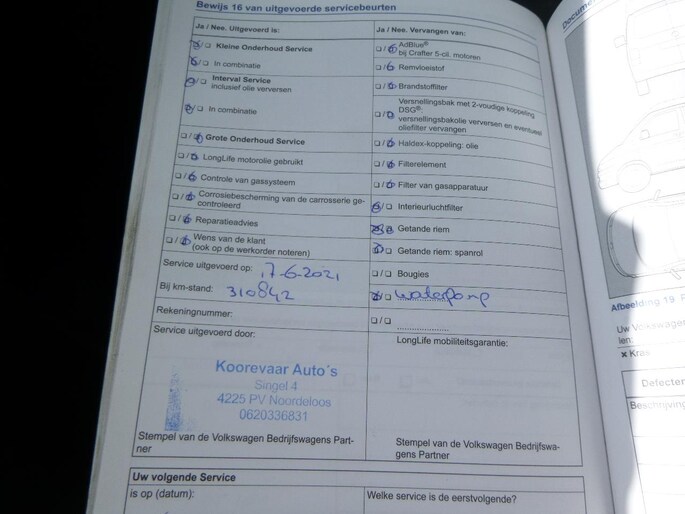 Bewijs 16 van uitgevoerde servicebeurten
Ja / Nee. Uitgevoerd is:
Kleine Onderhoud Service
In combinatie
Interval Service
inclusief olie verversen
In combinatie
Grote Onderhoud Service
LongLife motorolie gebruikt
Controle van gassysteem
Corrosiebescherming van de carrosserie ge-
controleerd
Reparatieadvies
Wens van de klant
(ook op de werkorder noteren)
Service uitgevoerd op: 17-6-2021
Bij km-stand: 310842
Rekeningnummer:
Service uitgevoerd door:
Koorevaar Auto´s
Singel 4
4225 PV Noordeloos
0620336831
Stempel van de Volkswagen Bedrijfswagens Part-
ner
Ja / Nee. Vervangen van:
AdBlue®
bij Crafter 5-cil. motoren
Remvloeistof
Brandstoffilter
Versnellingsbak met 2-voudige koppeling
DSG®:
versnellingsbakolie verversen en eventueel
oliefilter vervangen
Haldex-koppeling: olie
Filterelement
Filter van gasapparatuur
Interieurluchtfilter
Getande riem
Getande riem: spanrol
Bougies
waterpomp
LongLife mobiliteitsgarantie:
Stempel van de Volkswagen Bedrijfswa-
gens Partner
Uw volgende Service
is op (datum):
Welke service is de eerstvolgende?
Afbeelding 19
Uw Volkswagen
len:
× Kras
Defecten
Beschrijving